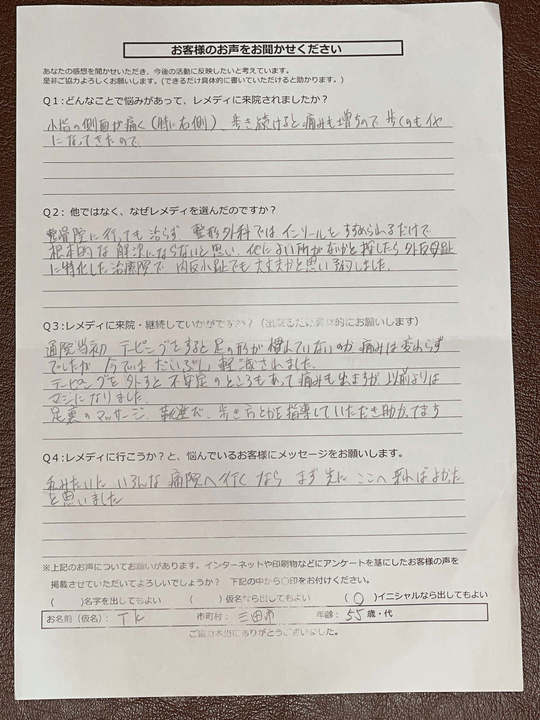 お客様のお声をお聞かせください
あなたの感想を聞かせいただき、今後の活動に反映したいと考えています。
是非ご協力よろしくお願いします。(できるだけ具体的に書いていただけると助かります。)
Q1：どんなことで悩みがあって、レメディに来院されましたか？
小指の側面が痛く(特に右側)、歩き続けると痛みも増すので歩くのもイヤ
になってきたので
Q2：他ではなく、なぜレメディを選んだのですか？
整骨院に行っても治らず 整形外科ではインソールをすすめられるだけで
根本的な解決にならないと思い、他によい所がないかと探したら外反母趾
に特化した治療院で 内反小趾でも大丈夫かと思い予約しました。
Q3：レメディに来院・継続していかがですか？（出来るだけ具体的にお願いします）
通院当初 テーピングをすると足の形が慣れていないのか痛みは変わらず
でしたが 今ではだいぶ 軽減されました。
テーピングを外すと不安定のところもあって痛みも出ますが以前よりは
マシになりました。
足裏のマッサージ、 歩き方とかを指導していただき助かってます
Q4：レメディに行こうか？と、悩んでいるお客様にメッセージをお願いします。
私みたいに いろんな病院へ行くなら まず先に ここへ来ればよかった
と思いました
※上記のお声についてお願いがあります。インターネットや印刷物などにアンケートを基にしたお客様の声を
掲載させていただいてよろしいでしょうか？ 下記の中から〇印をお付けください。
(　)名字を出してもよい (　)仮名なら出してもよい (〇)イニシャルなら出してもよい
お名前（仮名）： T K 市町村： 三田市 年齢： 55 歳・代
ご協力本当にありがとうございました。